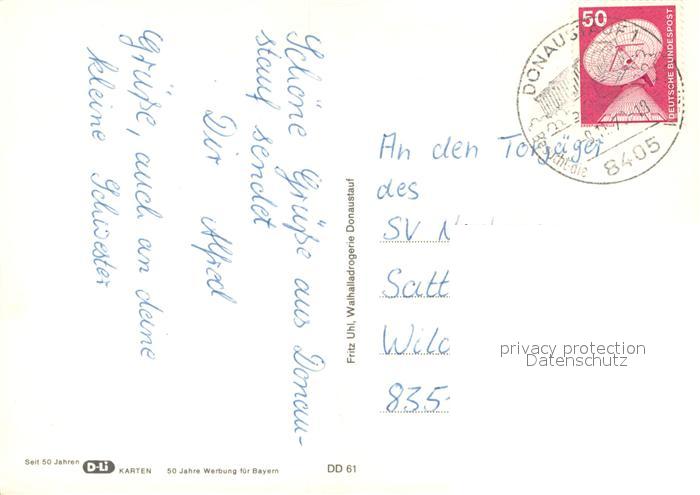 Schöne Grüße aus Donau-
stauf sendet
Dir Alfred
Grüße, auch an deine
kleine Schwester
Fritz Uhl, Walhalladrogerie Donaustauf
50
DEUTSCHE BUNDESPOST
DONAUSTAUF 1
8405
An den Torjäger
des
SV N
Satt
Wild
835
privacy protection
Datenschutz
Seit 50 Jahren D-Li KARTEN 50 Jahre Werbung für Bayern
DD 61